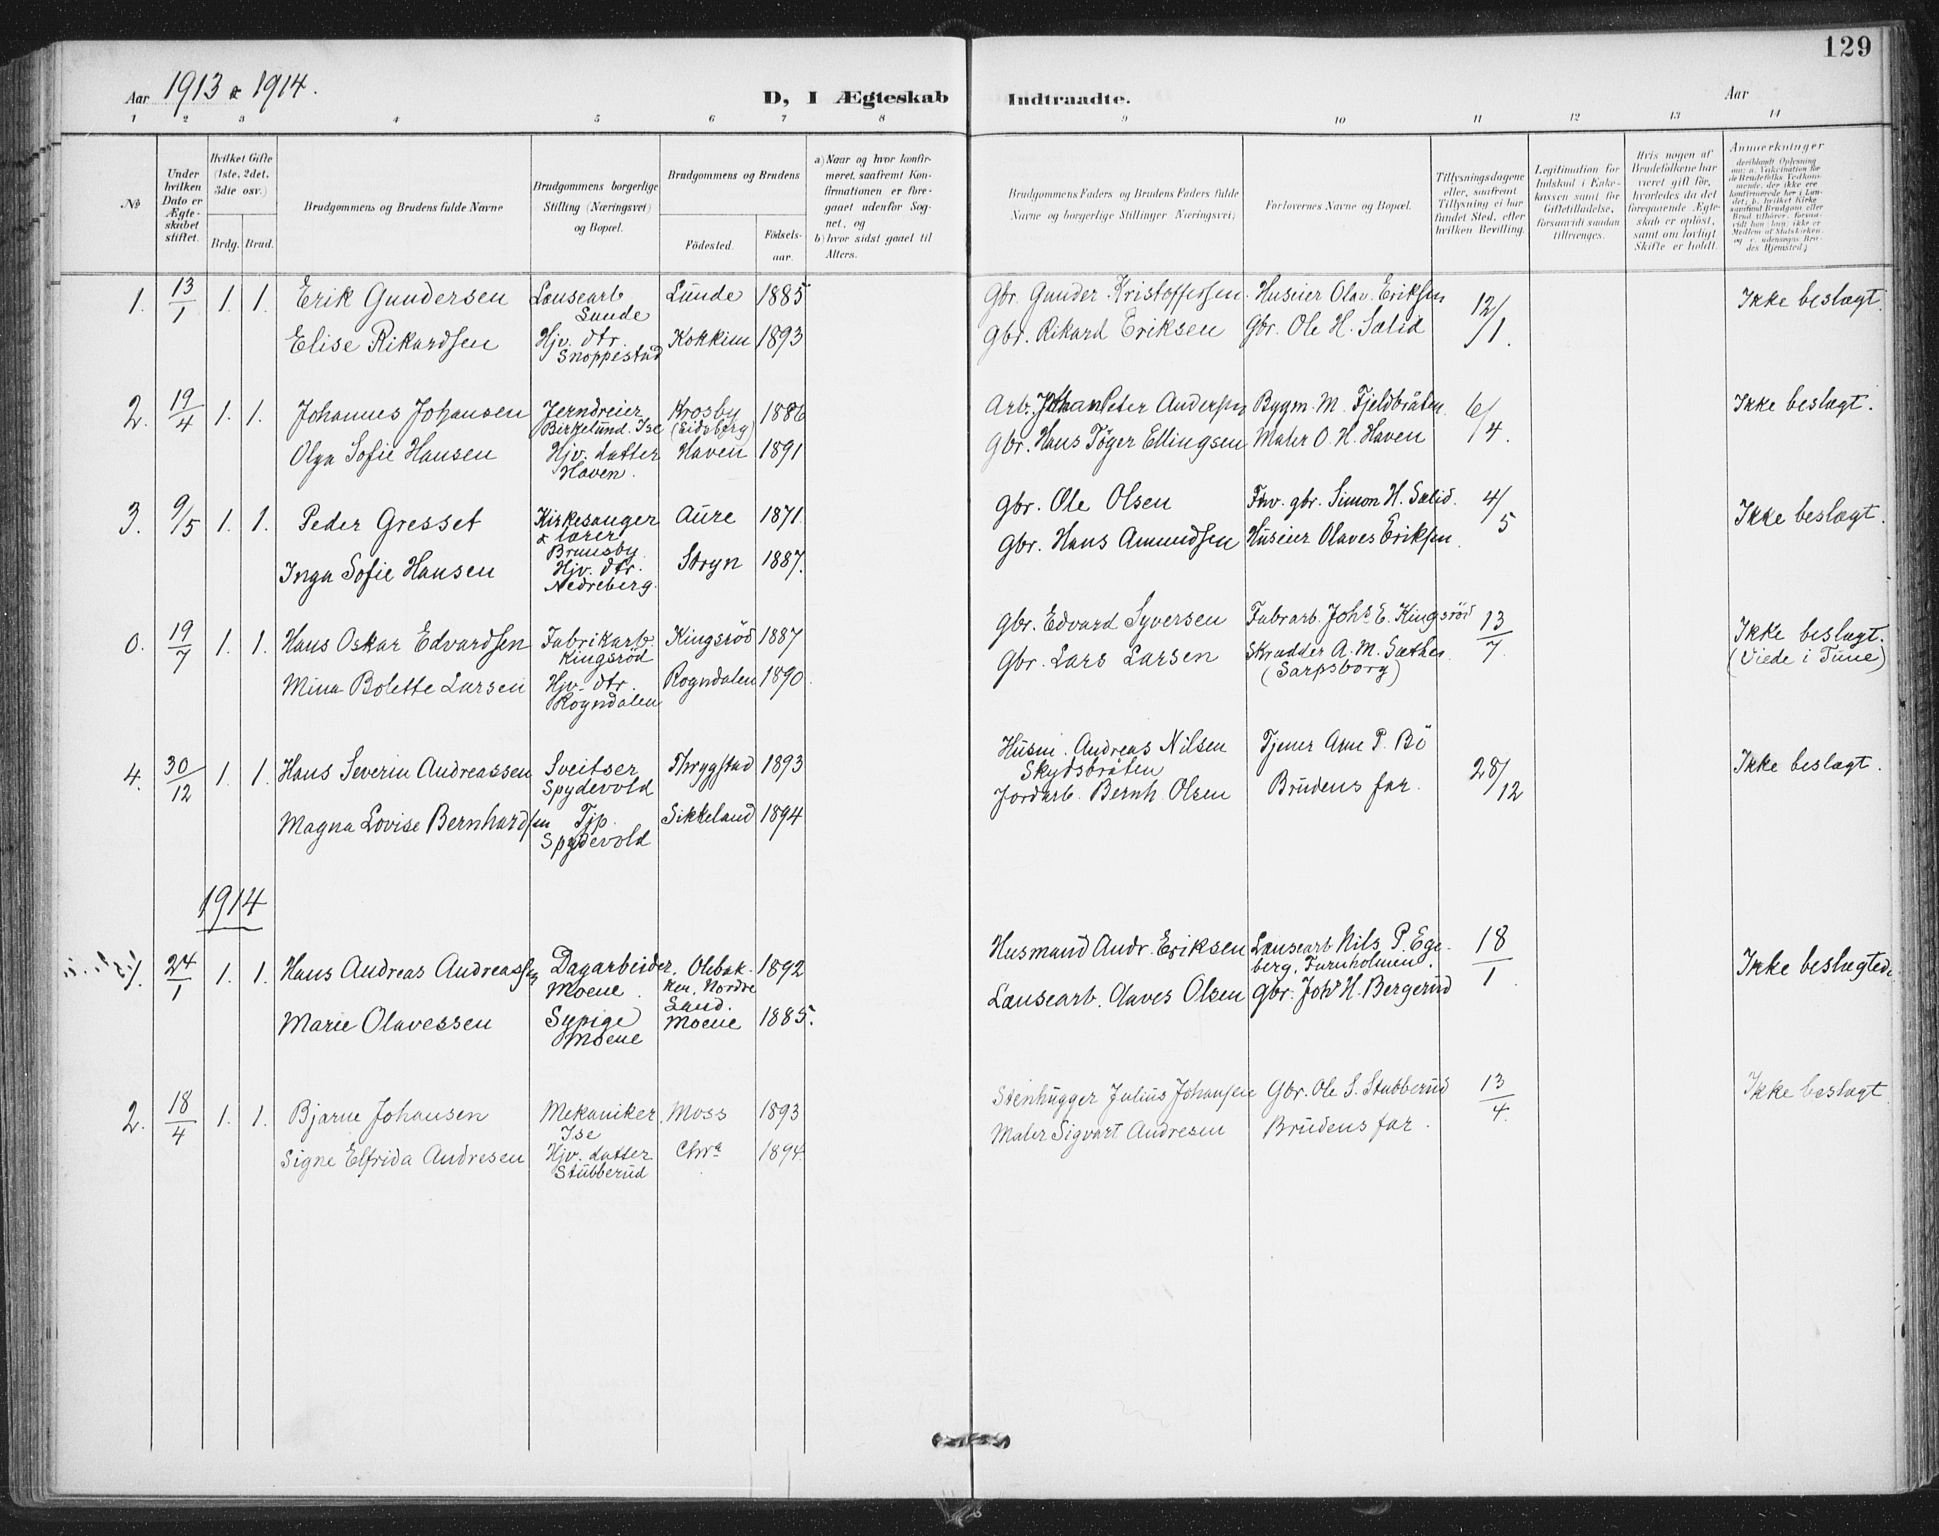 129
Aar 1913 & 1914.
D, I Ægteskab Indtraadte. Aar
1 2 3 4 5 6 7 8 9 10 11 12 13 14
No
Under hvilken Dato er Ægteskabet stiftet.
Hvilket Gifte (1ste, 2det, 3die osv.)
Brdg. Brud.
Brudgommens og Brudens fulde Navne
Brudgommens borgerlige Stilling (Næringsvei) og Bopæl.
Brudgommens og Brudens
Fødested.
Fødselsaar.
a) Naar og hvor konfirmeret, saafremt Konfirmationen er foregaaet udenfor Sognet, og
b) hvor sidst gaaet til Alters.
Brudgommens Faders og Brudens Faders fulde Navne og borgerlige Stillinger Næringsvei)
Forlovernes Navne og Bopæl.
Tillysningsdagene eller, saafremt Tillysning ei har fundet Sted, efter hvilken Bevilling.
Legitimation for Indskud i Enkekassen samt for Giftetilladelse, forsaavidt saadan tiltrænges.
Hvis nogen af Brudefolkene har været gift før, hvorledes da det foregaaende Ægteskab er opløst, samt om lovligt Skifte er holdt.
Anmærkninger
1. 13/1 1. 1. Erik Gundersen Lønsearb Lunde 1885 Gbr. Gunder Kristoffersen Huseier Olav Eriksen 12/1 Ikke beslægt.
Sunde
Elise Rikardsen Hjv. dtr. Kokkim 1893 Gbr. Rikard Eriksen Gbr. Ole H. Sælid
Snoppestad
2. 19/4 1. 1. Johannes Johansen Jerndreier Krosby 1886 Arb. Johan Peter Andersen Bygm. M. Fjeldbråten 6/4. Ikke beslægt.
Birkelund. Ise (Eidsberg)
Olga Sofie Hansen Hjv. datter Haven 1891 Gbr. Hans Töger Ellingsen Maler O. H. Haven
Haven.
3. 9/5 1. 1. Peder Gresset Kirkesanger Aure 1871. Gbr. Ole Olsen Fhv. gbr. Simon H. Sælid. 4/5 Ikke beslægt.
& lærer
Brunsby.
Inga Sofie Hansen Hjv. dtr. Stryn 1887. Gbr. Hans Amundsen Huseier Olaves Eriksen
Nedreberg.
0. 19/7 1. 1. Hans Oskar Edvardsen Fabrikarb. Kingsröd 1887 Gbr. Edvard Syversen Fabrarb. Johs E. Kingsröd 13/7. Ikke beslægt.
Kingsröd (Viede i Tune)
Mina Bolette Larsen Hjv. dtr. Rogndalen 1890. Gbr. Lars Larsen Skrædder A. M. Sæther.
Rogndalen (Sarpsborg)
4. 30/12 1. 1. Hans Severin Andreassen Sveitser Thrygstad 1893 Husm. Andreas Nilsen Tjener Arne P. Bö 28/12 Ikke beslægt.
Spydevold Skydsbråten
Magna Lovise Bernhardsen Tjp. Sikkeland 1894 Jordarb. Bernh. Olsen Brudens far.
Spydevold
1914
1. 24/1 1. 1. Hans Andreas Andreassen Dagarbeider, Olebak- 1892 Husmand Andr. Eriksen Lønsearb Nils P. Ege- 18/1. Ikke beslægted.
Moene. ken, Nordre berg, Furuholmen.
Sand.
Marie Olavessen Sypige Moene 1885. Lønsearb. Olaves Olsen Gbr. Johs H. Bergerud
Moene
2. 18/4 1. 1. Bjarne Johansen Mekaniker, Moss 1893 Stenhugger Julius Johansen Gbr. Ole S. Stubberud 13/4. Ikke beslægt
Ise
Signe Elfrida Andresen Hjv. datter Chra 1894 Maler Sigvart Andresen Brudens far.
Stubberud